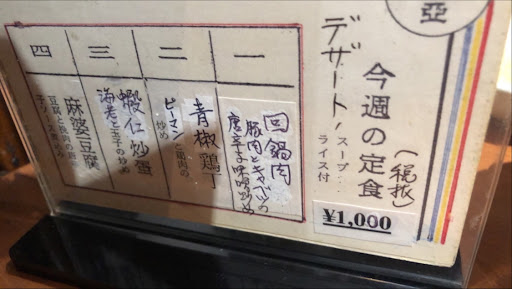 亞
今週の定食
(税抜)
¥1,000
デザート、スープ
ライス付
一
回鍋肉
豚肉とキャベツの
唐辛子味噌炒め
二
青椒鶏丁
ピーマンと鶏肉の
炒め
三
蝦仁炒蛋
海老と玉子の炒め
四
麻婆豆腐